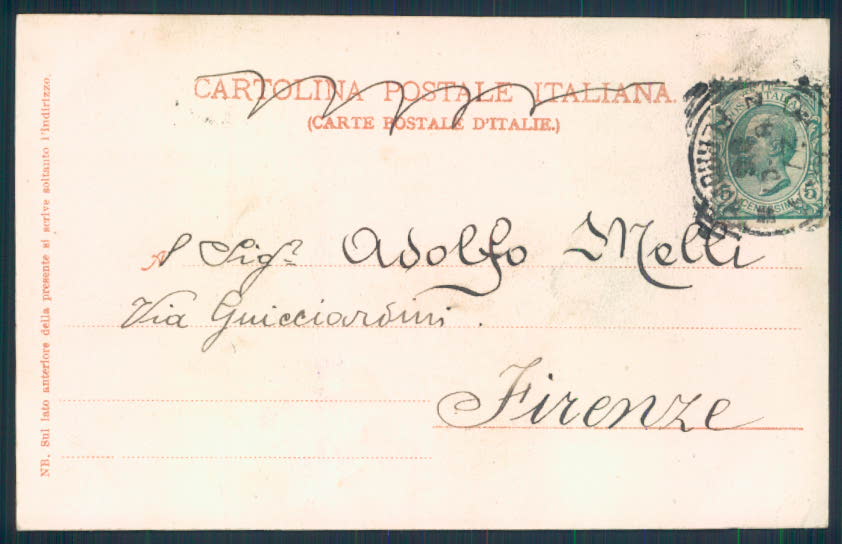 CARTOLINA POSTALE ITALIANA.
(CARTE POSTALE D'ITALIE.)
POSTE ITALIANE
CENTESIMI 5
Al Sigr Adolfo Melli
Via Guicciardini.
Firenze
NB. Sul lato anteriore della presente si scrive soltanto l'indirizzo.